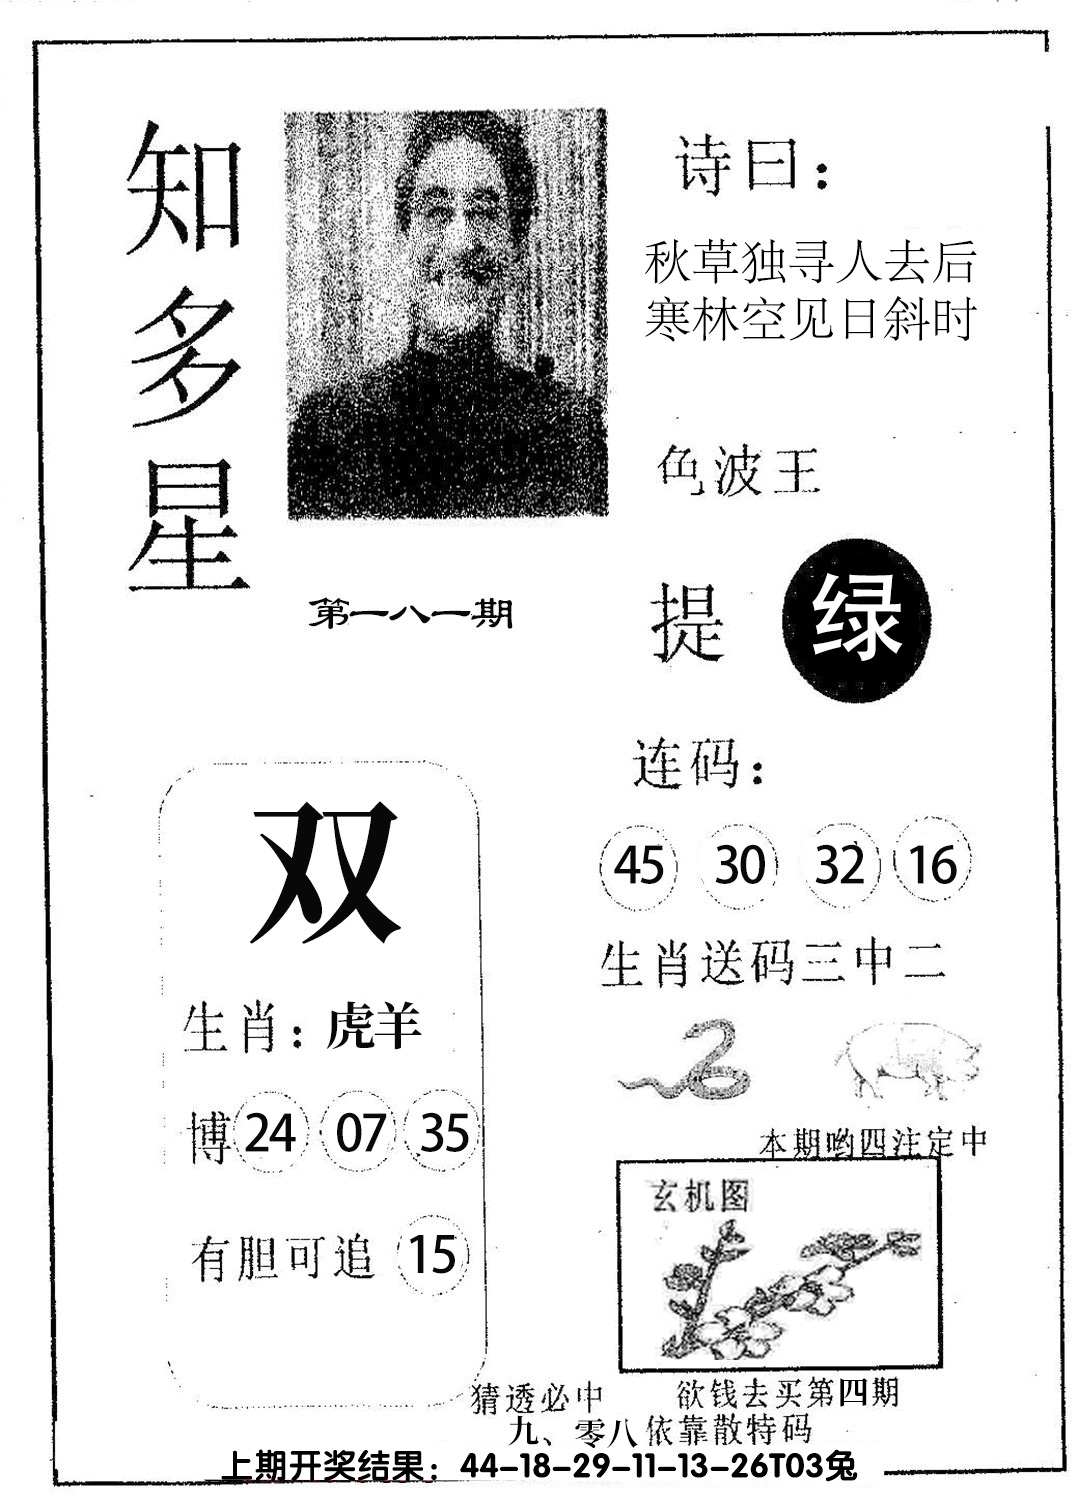 知多星
诗曰：
秋草独寻人去后
寒林空见日斜时
色波王
提 绿
第一八一期
连码：
45 30 32 16
生肖送码三中二
双
生肖：虎羊
博 24 07 35
有胆可追 15
本期哟四注定中
玄机图
猜透必中 欲钱去买第四期
九、零八依靠散特码
上期开奖结果：44-18-29-11-13-26T03兔